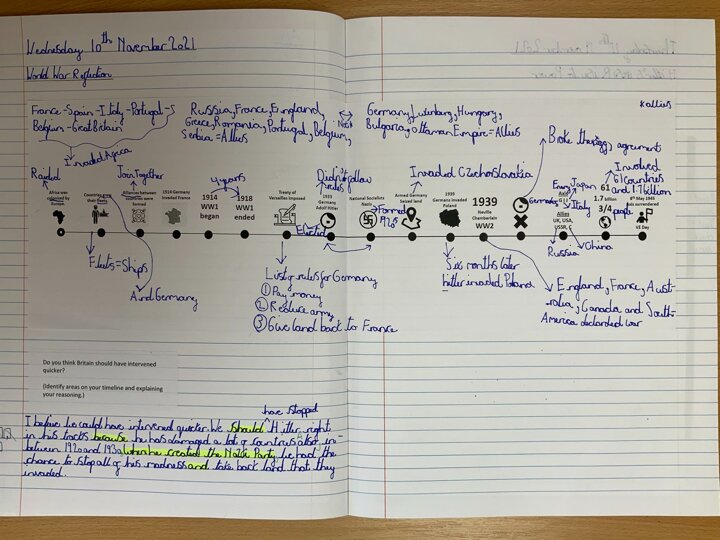 Wednesday 10th November 2021
World War Reflection
France - Spain - Italy - Portugal - S
Belgium - Great Britain
Invaded Africa
Russia, France, England,
Greece, Romania, Portugal, Belgium,
Serbia = Allies
Germany, Hungary,
Bulgaria, Ottaman Empire = Allies
Broke agreements
Raided
Join Together
4 years
Didn't follow
rules
Invaded Czechoslavakia
Involved
61 Countries
and 1.7 billion
people
Every Japan
Italy
Germany
Africa was
colonised by
Countries grew
their fleets.
Alliances between
countries were
formed
1914 Germany
Invaded France
1914
WW1
began
1918
WW1
ended
Treaty of
Versailles imposed
1933
Germany
Adolf Hitler
National Socialists
Nazis
Formed
1925
Armed Germany
Seized land
1939
Germany invaded
Poland
1939
Neville
Chamberlain
WW2
Allies
UK, USA,
USSR,
61
1.7
billion
3/4
8th May 1945
VE Day
Elected
Fleets = Ships
And Germany
List of rules for Germany
① Pay money
② Reduce army
③ Give land back to France
Six months later
hitler invaded Poland
Russia
China
England, France, Aust-
ralia, Canada and South-
America declarded war
Do you think Britain should have intervened
quicker?
(Identify areas on your timeline and explaining
your reasoning.)
have stopped
I before we could have intervened quicker. We should Hitler right
in his tracks because he has damaged a lot of countries also in-
between 1920 and 1930 when he created the Natzie Party we had the
chance to stop all of his madness and take back land that they
invaded.